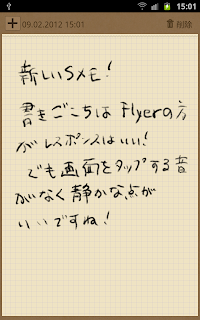 15:01
09.02.2012 15:01
削除
新しいSメモ!
書きごこちは Flyerの方
がレスポンスはいい!
でも画面をタップする音
がなく静かな点が
いいですね!